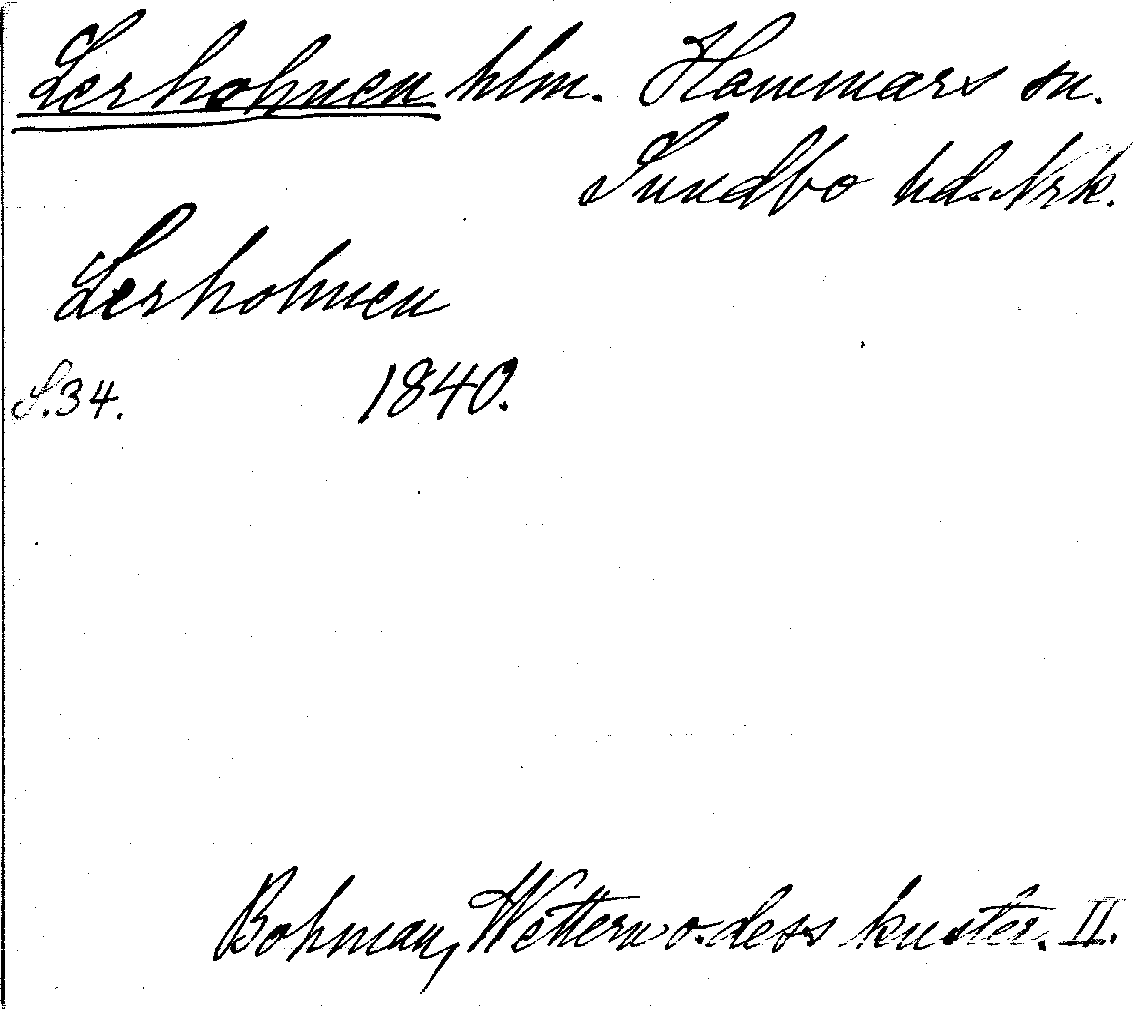 Lerholmen hlm. Hammars sn.
Sundbo hd. Nrk.
Lerholmen
S.34. 1840.
Bohman, Wettern o. dess kuster. II.